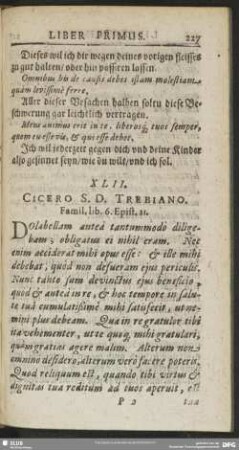 LIBER PRIMUS. 227
Dieses wil ich dir wegen deines vorigen fleisses
zu gut halten / oder hin passiren lassen.
Omnibus his de causis debes istam molestiam
quàm levissimè ferre,
Aller dieser Ursachen halben soltu diese Be-
schwerung gar leichtlich vertragen.
Meus animus erit in te, liberosq; tuos semper,
quem tu esse vis, & qui esse debet.
Ich wil jederzeit gegen dich und deine Kinder
also gesinnet seyn / wie du wilt / und ich sol.
XLII.
CICERO S. D. TREBIANO.
Famil. lib. 6. Epist. 11.
Dolabellam anteà tantummodo dilige-
bam; obligatus ei nihil eram. Nec
enim acciderat mihi opus esse: & ille mihi
debebat, quòd non defueram ejus periculis.
Nunc tanto sum devinctus ejus beneficio,
quod & anteà in re, & hoc tempore in salu-
te tuâ cumulatissimè mihi satisfecit, ut ne-
mini plus debeam. Qua in re gratulor tibi
ita vehementer, ut te quoq; mihi gratulari,
quàm gratias agere malim. Alterum non
omnino desidero, alterum verè facere poteris.
Quod reliquum est, quando tibi virtus &
dignitas tua reditum ad tuos aperuit, est
P 2 tua
SLUB